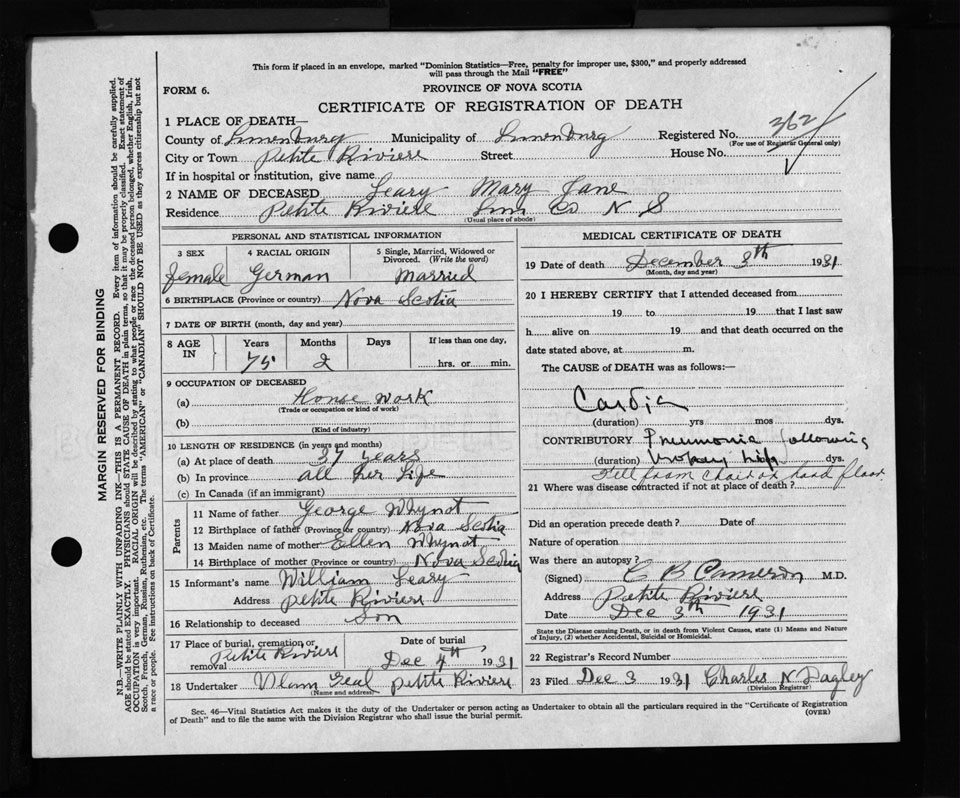 This form if placed in an envelope, marked "Dominion Statistics—Free, penalty for improper use, $300," and properly addressed
will pass through the Mail "FREE"
FORM 6.
PROVINCE OF NOVA SCOTIA
CERTIFICATE OF REGISTRATION OF DEATH
1 PLACE OF DEATH—
County of Lunenburg Municipality of Lunenburg Registered No. 362
(For use of Registrar General only)
City or Town Petite Riviere Street House No.
If in hospital or institution, give name
2 NAME OF DECEASED Leary Mary Jane
Residence Petite Riviere Lun Co N S
(Usual place of abode)
PERSONAL AND STATISTICAL INFORMATION
3 SEX 4 RACIAL ORIGIN 5 Single, Married, Widowed or
Divorced. (Write the word)
female German Married
6 BIRTHPLACE (Province or country) Nova Scotia
7 DATE OF BIRTH (month, day and year)
8 AGE IN Years Months Days If less than one day,
75 2 hrs. or min.
9 OCCUPATION OF DECEASED
(a) House work
(Trade or occupation or kind of work)
(b)
(Kind of industry)
10 LENGTH OF RESIDENCE (in years and months)
(a) At place of death 37 years
(b) In province all her life
(c) In Canada (if an immigrant)
Parents
11 Name of father George Whynot
12 Birthplace of father (Province or country) Nova Scotia
13 Maiden name of mother Ellen Whynot
14 Birthplace of mother (Province or country) Nova Scotia
15 Informant's name William Leary
Address Petite Riviere
16 Relationship to deceased Son
17 Place of burial, cremation or
removal Petite Riviere
Date of burial
Dec 4th 1931
18 Undertaker Petite Riviere
(Name and address)
MEDICAL CERTIFICATE OF DEATH
19 Date of death December 3th 1931
(Month, day and year)
20 I HEREBY CERTIFY that I attended deceased from
19 to 19 that I last saw
h alive on 19 and that death occurred on
date stated above, at m.
The CAUSE of DEATH was as follows:—
Cardia
(duration) yrs mos dys.
CONTRIBUTORY Pneumonia following
(duration) broken hip dys.
Fell from chair on hard floor
21 Where was disease contracted if not at place of death?
Did an operation precede death? Date of
Nature of operation
Was there an autopsy?
(Signed) C B Cameron M.D.
Address Petite Riviere
Date Dec 3th 1931
State the Disease causing Death, or in death from Violent Causes, state (1) Means and Nature
of Injury, (2) whether Accidental, Suicidal or Homicidal.
22 Registrar's Record Number
23 Filed Dec 3 1931 Charles N Dagley
(Division Registrar)
Sec. 46—Vital Statistics Act makes it the duty of the Undertaker or person acting as Undertaker to obtain all the particulars required in the "Certificate of Registration
of Death" and to file the same with the Division Registrar who shall issue the burial permit.
(OVER)
MARGIN RESERVED FOR BINDING
N.B.—WRITE PLAINLY WITH UNFADING INK—THIS IS A PERMANENT RECORD. Every item of information should be carefully supplied.
AGE should be stated EXACTLY. PHYSICIANS should STATE CAUSE OF DEATH in plain terms, so that it may be properly classified. Exact statement of
OCCUPATION is very important. RACIAL ORIGIN will be described by stating to what people or race the deceased person belonged, whether English, Irish,
Scotch, French, German, Russian, Ruthenian, etc. The terms "AMERICAN" or "CANADIAN" SHOULD NOT BE USED as they express citizenship but not
a race or people. See instructions on back of Certificate.